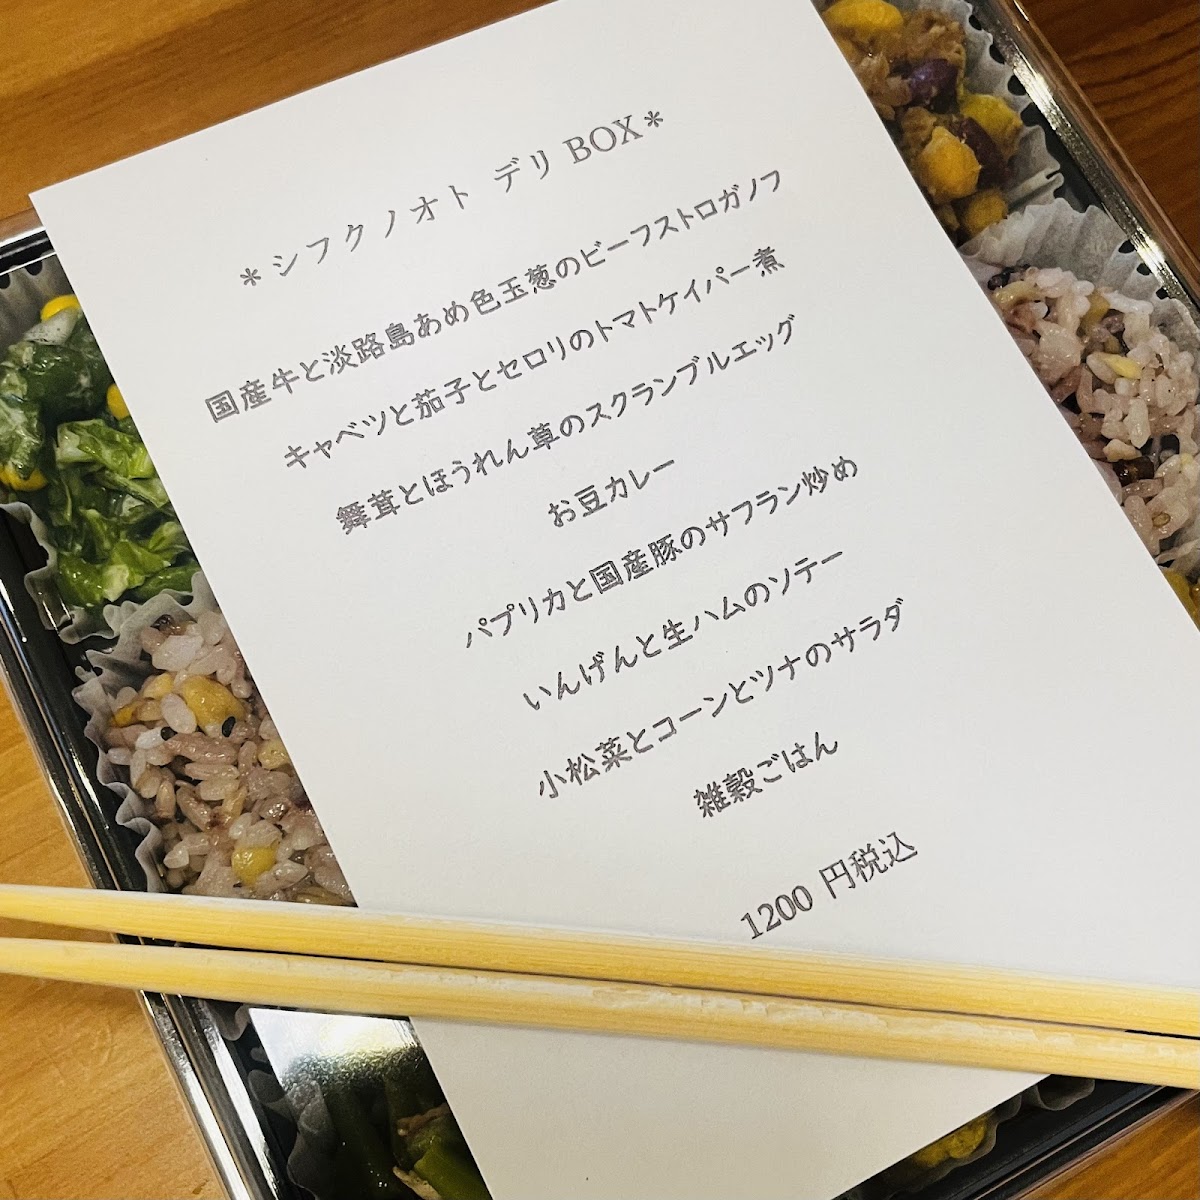 ＊シフクノオト デリ BOX＊
国産牛と淡路島あめ色玉葱のビーフストロガノフ
キャベツと茄子とセロリのトマトケイパー煮
舞茸とほうれん草のスクランブルエッグ
お豆カレー
パプリカと国産豚のサフラン炒め
いんげんと生ハムのソテー
小松菜とコーンとツナのサラダ
雑穀ごはん
1200 円税込